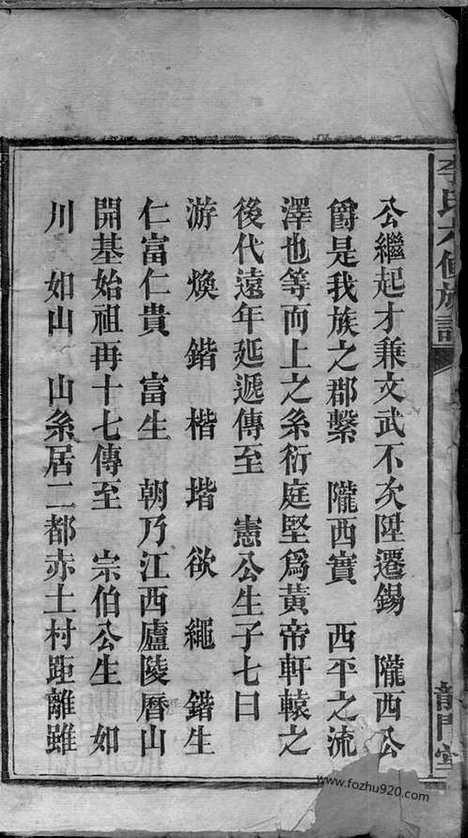 李氏六修族譜
龍門堂
公繼起才兼文武不次陞遷錫　隴西公
爵是我族之郡繫　隴西實　西平之流
澤也等而上之系衍庭堅爲黃帝軒轅之
後代遠年延遞傳至　憲公生子七曰
游　煥　鍇　楷　堦　欲　繩　鍇生
仁富仁貴　富生　朝乃江西廬陵曆山
開基始祖再十七傳至　宗伯公生　如
川　如山　山系居二都赤土村距離雖
www.fozhu920.com